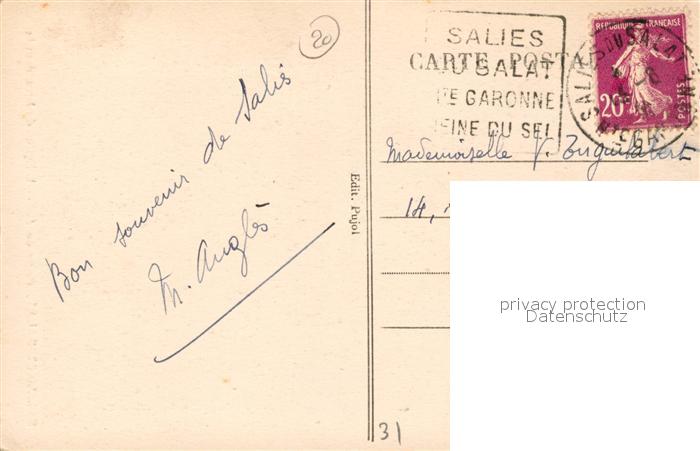 20
Bon souvenir de Salis
M. Anglès
Edit. Pujol
31
SALIES
DU SALAT
TE GARONNE
REINE DU SEL
CARTE POSTALE
REPUBLIQUE FRANÇAISE
20
POSTES
SALIES DU SALAT
Mademoiselle
14,
privacy protection
Datenschutz